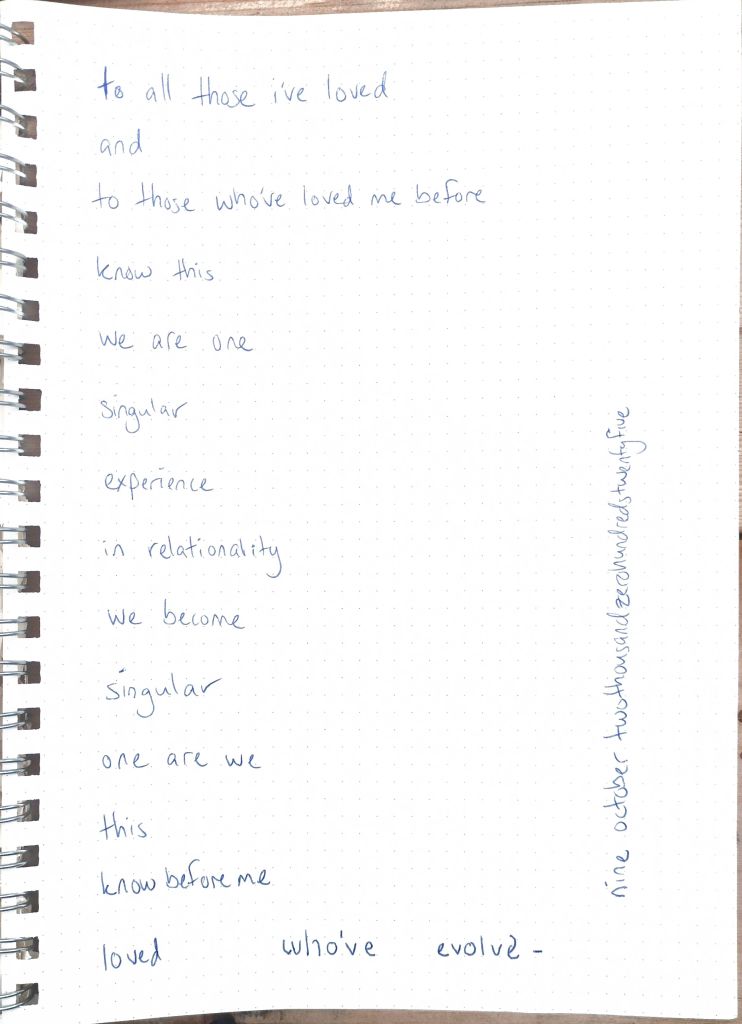 to all those i've loved
and
to those who've loved me before
know this
we are one
singular
experience
in relationality
we become
singular
one are we
this
know before me
loved who've evolve-
nine october twothousandzerohundredstwentyfive